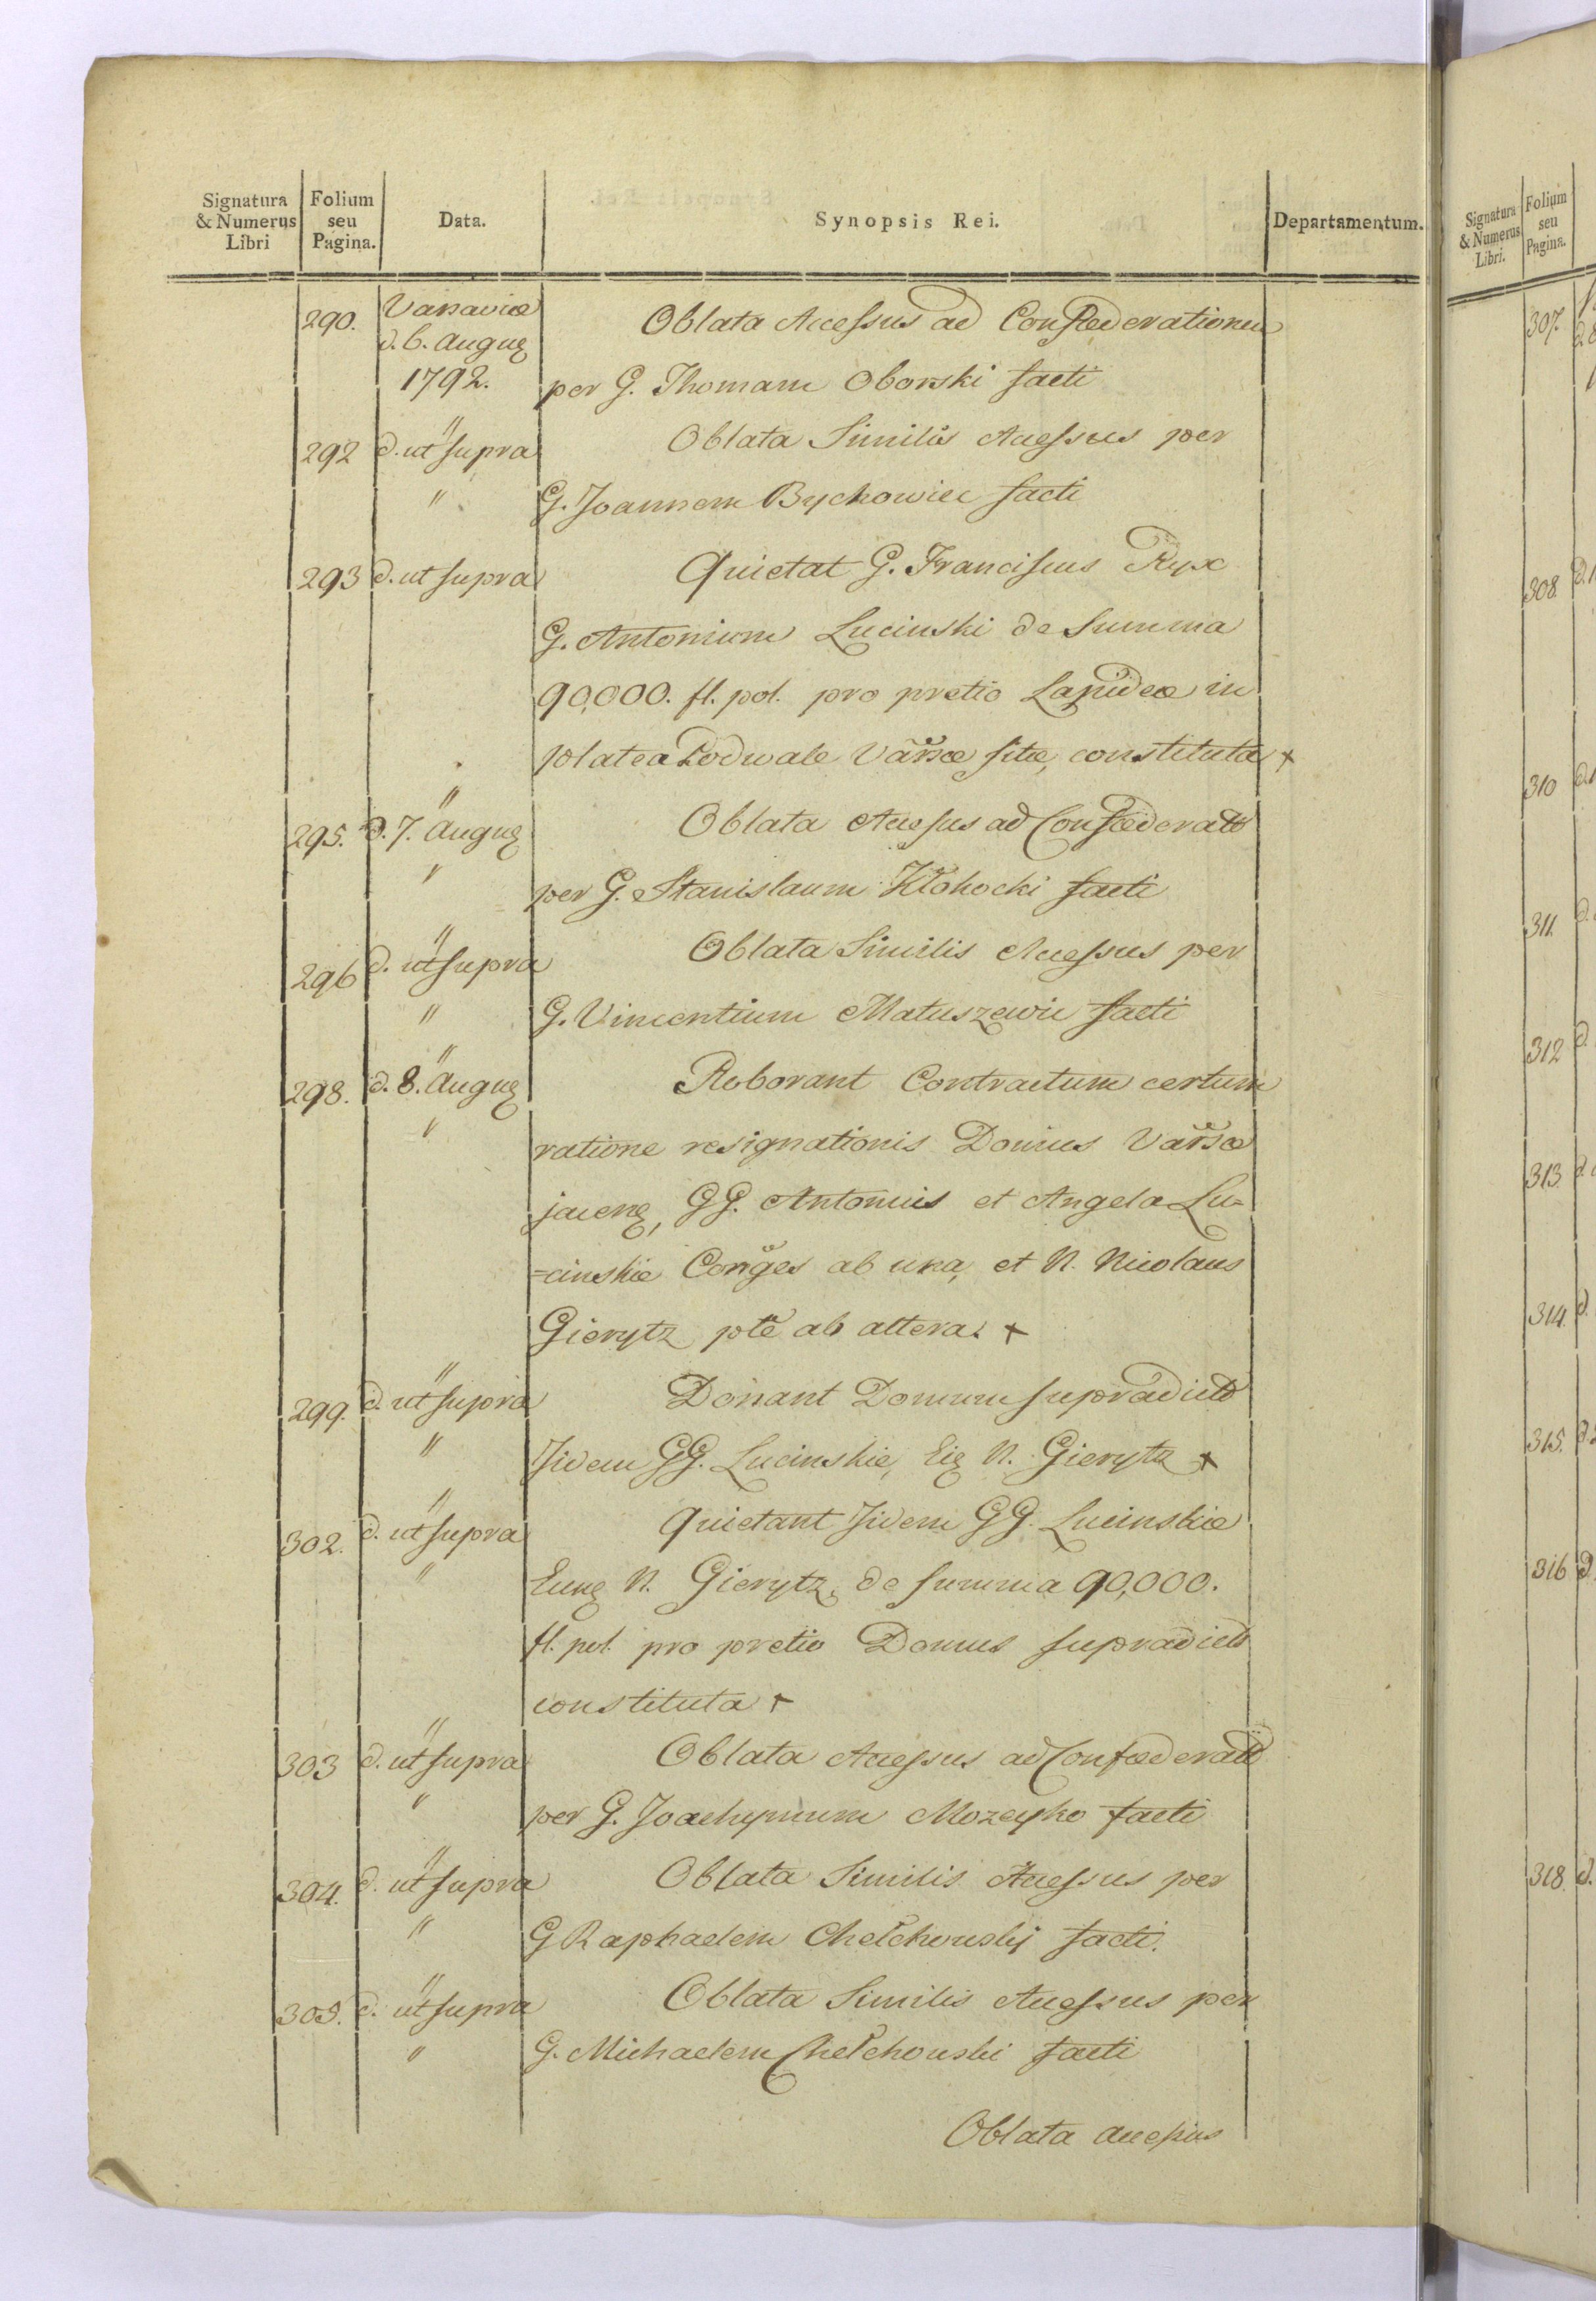 Signatura & Numerus Libri | Folium seu Pagina. | Data. | Synopsis Rei. | Departamentum.
290. Varsaviæ Oblata Accessus ad Confœderationem
d. 6. Augug
1792. per G. Thomam Oborski facti
292 d. ut supra Oblata Similis Accessus per
" G. Joannem Bychowiec facti
293 d. ut supra Quietat G. Franciscus Ryx
G. Antonium Lucinski de Summa
90,000. fl. pol. pro pretio Lapideæ in
platea Podwale Varsæ sitæ, constituta +
"
295. d. 7. Augug Oblata Accessus ad Confœderatt
" per G. Stanislaum Kłokocki facti
296 d. ut supra Oblata Similis Accessus per
" G. Vincentium Matuszewic facti
298. d. 8. Augug Roborant Contractum certum
" ratione resignationis Domus Varsæ
jaceng, GG. Antonius et Angela Lu=
=cinskie Conges ab una, et N. Nicolaus
Gierytz pte ab altera. +
299. d. ut supra Donant Domum supradictt
" Iidem GG. Lucinskie, Eig N. Gierytz +
302. d. ut supra Quietant Iidem GG. Lucinskie
" Eung N. Gierytz, de summa 90,000.
fl. pol. pro pretio Domus supradictt
constituta +
303 d. ut supra Oblata Accessus ad Confœderatt
" per G. Joachymum Mozeyko facti
304. d. ut supra Oblata Similis Accessus per
" G Raphaelem Chełchowski facti.
305. d. ut supra Oblata Similis Accessus per
" G. Michaelem Chełchowski facti
Oblata Accessus
Signatura & Numerus Libri. | Folium seu Pagina.
307.
308
310
311.
312
313
314.
315.
316
318.